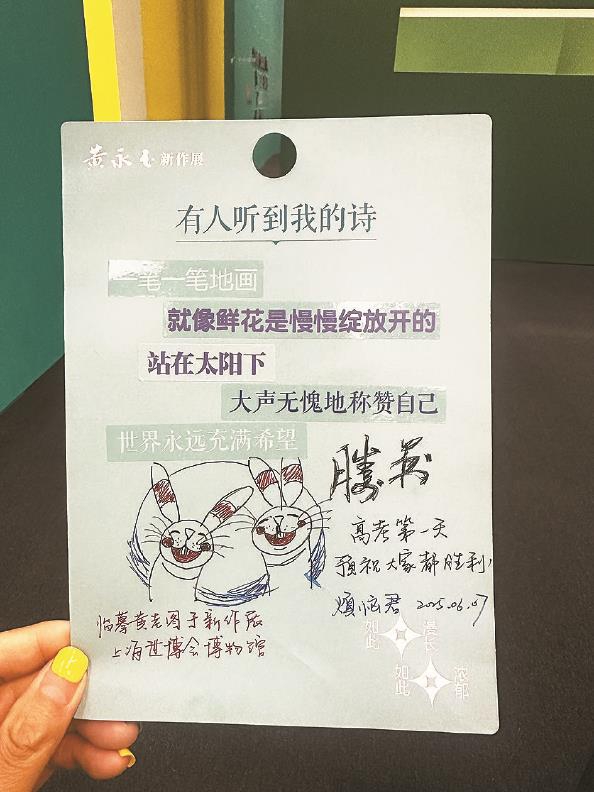 黄永玉新作展
有人听到我的诗
一笔一笔地画
就像鲜花是慢慢绽放开的
站在太阳下
大声无愧地称赞自己
世界永远充满希望
高考第一天
预祝大家都胜利!
煩恼君 2025.06.07
临摹黄老图于新作展
上海世博会博物馆
如此 漫长
如此 浓郁